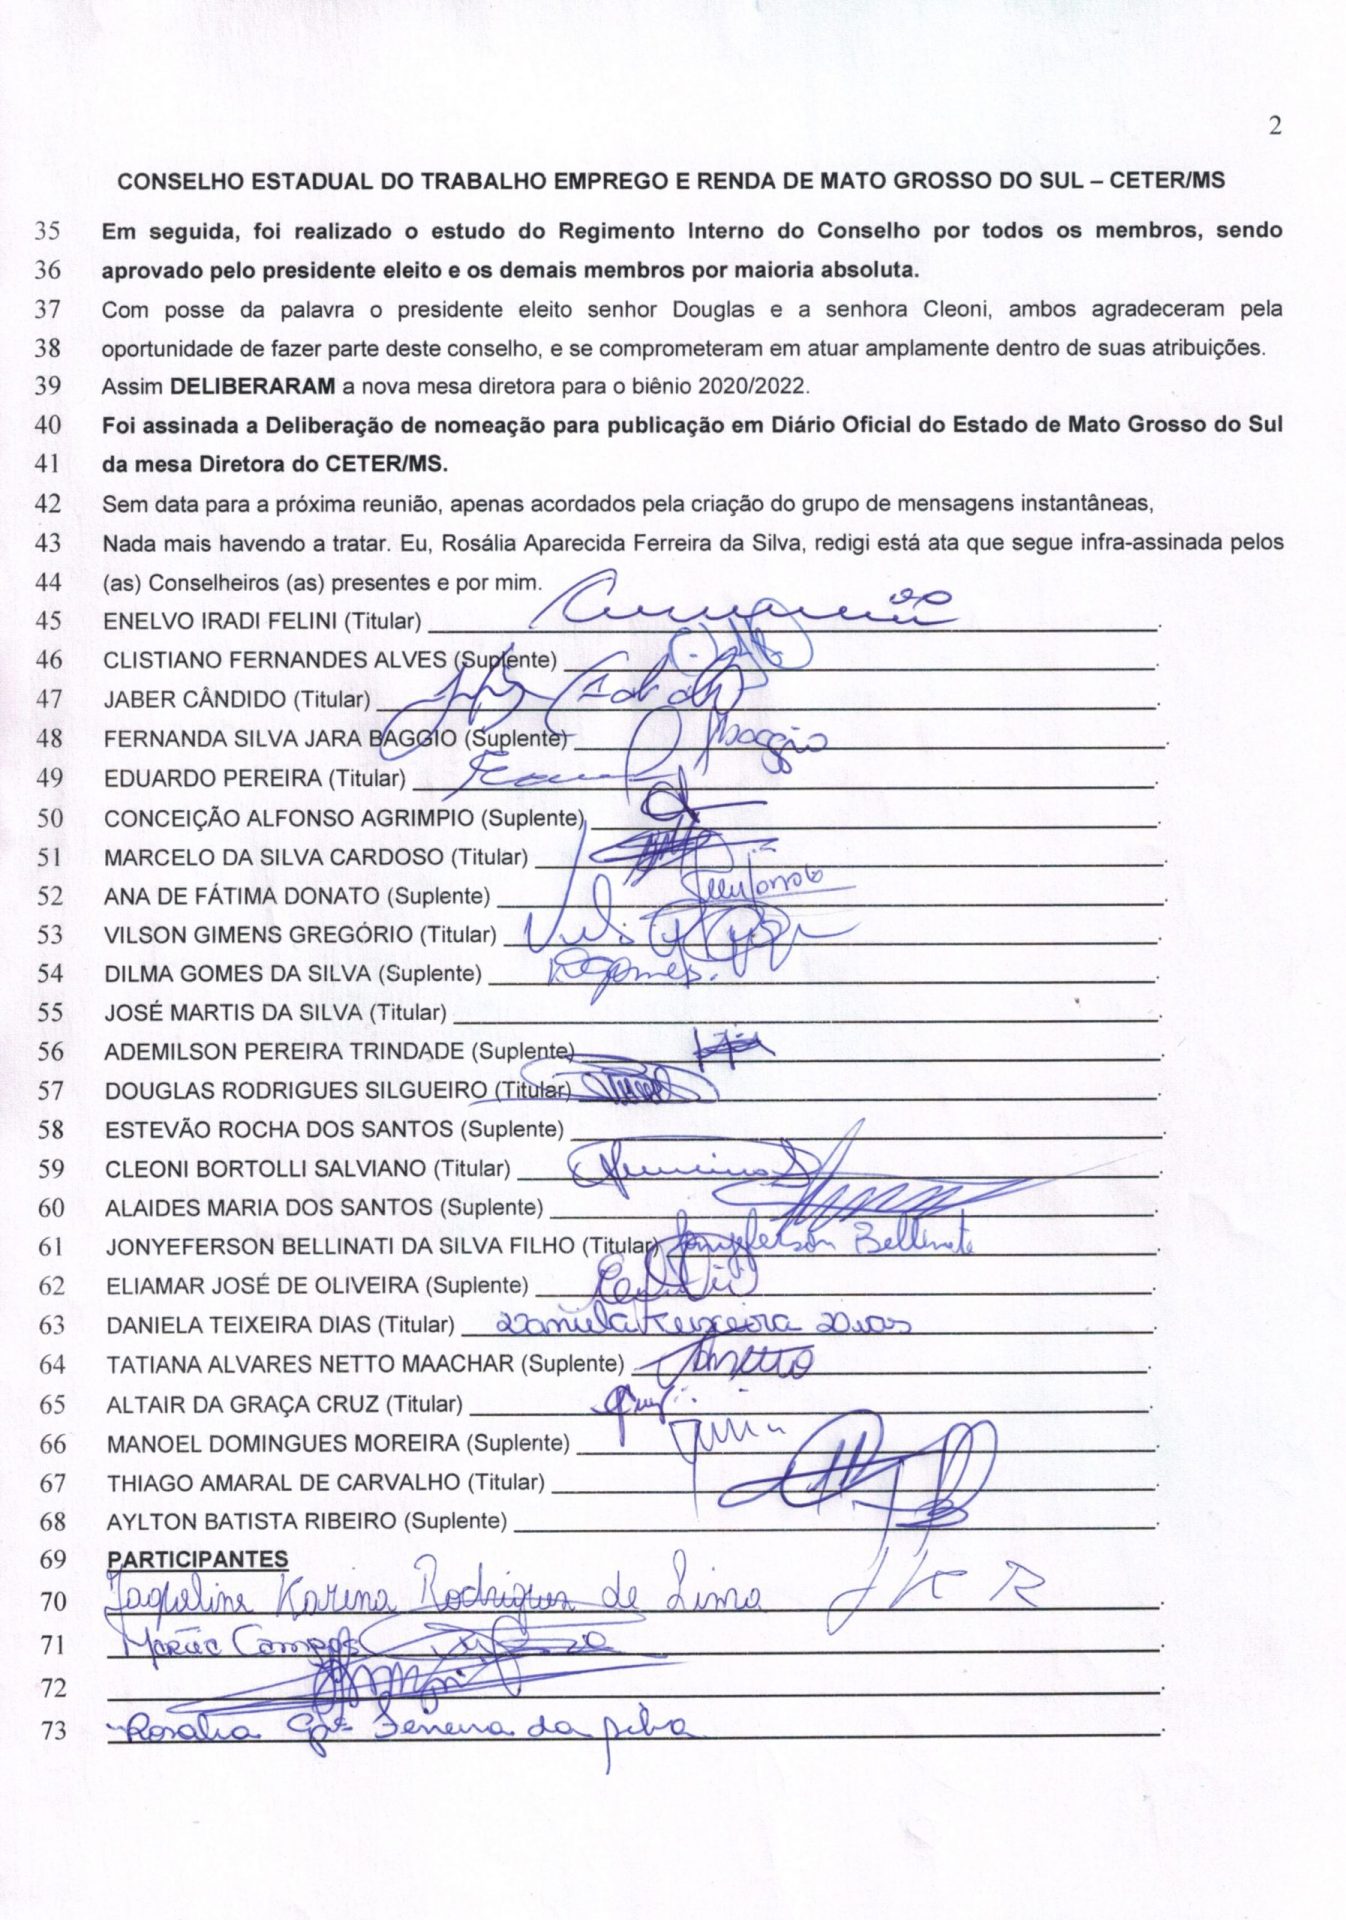 2
CONSELHO ESTADUAL DO TRABALHO EMPREGO E RENDA DE MATO GROSSO DO SUL – CETER/MS
35 Em seguida, foi realizado o estudo do Regimento Interno do Conselho por todos os membros, sendo
36 aprovado pelo presidente eleito e os demais membros por maioria absoluta.
37 Com posse da palavra o presidente eleito senhor Douglas e a senhora Cleoni, ambos agradeceram pela
38 oportunidade de fazer parte deste conselho, e se comprometeram em atuar amplamente dentro de suas atribuições.
39 Assim DELIBERARAM a nova mesa diretora para o biênio 2020/2022.
40 Foi assinada a Deliberação de nomeação para publicação em Diário Oficial do Estado de Mato Grosso do Sul
41 da mesa Diretora do CETER/MS.
42 Sem data para a próxima reunião, apenas acordados pela criação do grupo de mensagens instantâneas,
43 Nada mais havendo a tratar. Eu, Rosália Aparecida Ferreira da Silva, redigi está ata que segue infra-assinada pelos
44 (as) Conselheiros (as) presentes e por mim.
45 ENELVO IRADI FELINI (Titular)
46 CLISTIANO FERNANDES ALVES (Suplente)
47 JABER CÂNDIDO (Titular)
48 FERNANDA SILVA JARA BAGGIO (Suplente) Baggio
49 EDUARDO PEREIRA (Titular)
50 CONCEIÇÃO ALFONSO AGRIMPIO (Suplente)
51 MARCELO DA SILVA CARDOSO (Titular)
52 ANA DE FÁTIMA DONATO (Suplente)
53 VILSON GIMENS GREGÓRIO (Titular)
54 DILMA GOMES DA SILVA (Suplente) DGomes.
55 JOSÉ MARTIS DA SILVA (Titular)
56 ADEMILSON PEREIRA TRINDADE (Suplente)
57 DOUGLAS RODRIGUES SILGUEIRO (Titular)
58 ESTEVÃO ROCHA DOS SANTOS (Suplente)
59 CLEONI BORTOLLI SALVIANO (Titular)
60 ALAIDES MARIA DOS SANTOS (Suplente)
61 JONYEFERSON BELLINATI DA SILVA FILHO (Titular) Jonyeferson Bellinate
62 ELIAMAR JOSÉ DE OLIVEIRA (Suplente)
63 DANIELA TEIXEIRA DIAS (Titular) Daniela Teixeira Dias
64 TATIANA ALVARES NETTO MAACHAR (Suplente)
65 ALTAIR DA GRAÇA CRUZ (Titular)
66 MANOEL DOMINGUES MOREIRA (Suplente)
67 THIAGO AMARAL DE CARVALHO (Titular)
68 AYLTON BATISTA RIBEIRO (Suplente)
69 PARTICIPANTES
70 Jaqueline Karina Rodrigues de Lima JKR
71 Campos
72
73 Rosalia Apª Ferreira da Silva